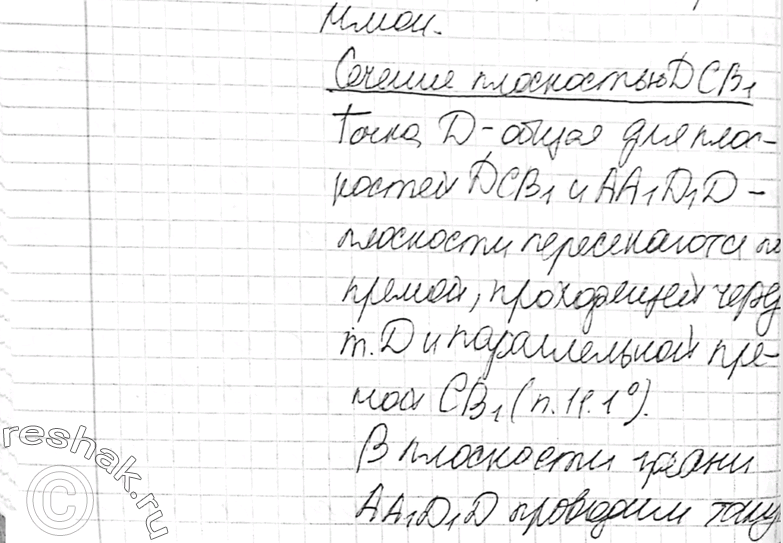 ямой.
Сечение плоскостью DCB₁
Точка D - общая для плос-
костей DCB₁ и AA₁D₁D -
плоскости пересекаются по
прямой, проходящей через
т. D и параллельной пря-
мой CB₁ (п. 11.1°).
В плоскости грани
AA₁D₁D проводим таку
reshak.ru